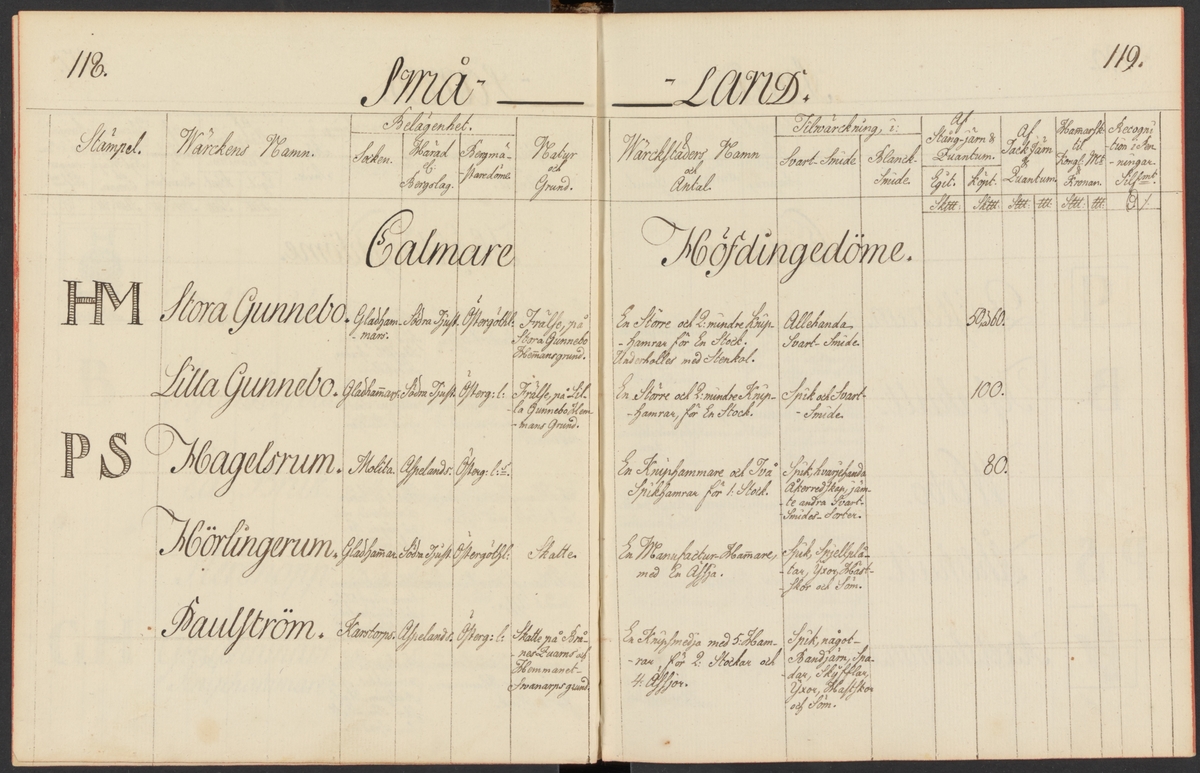 118.
119.
Små-
-LAND.
Stämpel.
Wärckens Namn.
Belägenhet.
Socken.
Härad
&
Bergslag.
Bergmä-
-staredöme.
Natur
och
Grund.
Wärckstäders Namn
och
Antal.
Tilwärckning, i:
Svart-Smide
Blanck-
Smide.
Af
Stång-järn &
Quantum.
Eget.
Köpt.
Af
Tackjärn
&
Quantum.
Hamarsk.
til
Kongl. Mt
&
Kronan.
Recogni
tion i Pen
-ningar.
Silf:mt.
Calmare
Höfdingedöme.
HM
Stora Gunnebo.
Gladham-
-mars.
Södra Tjust.
Östergöthl:
Frälse, på
Stora Gunnebo
Hemansgrund.
En Större och 2: mindre Knip-
-hamrar för En Stock.
Underholles med Stenkol.
Allehanda
Svart-Smide.
50 à 60.
Lilla Gunnebo.
Gladhammars.
Södra Tjust.
Österg: l:
Frälse, på Lil-
la Gunnebo Hem-
-mans Grund.
En Större och 2: mindre Knip-
-hamrar, för En Stock.
Spik och Svart-
-Smide.
100.
PS
Hagelsrum.
Molila.
Aspelands.
Österg: l:
En Kniphammare och Två
Spikhamrar för 1: Stock.
Spik, hvarjehanda
Åkerredskap, jäm-
-te andra Svart-
Smides-Sorter.
80.
Hörlingerum.
Gladhammar.
Södra Tjust.
Östergöthl:
Skatte.
En Manufactur-Hamare,
med En Ässja.
Spik, Spjellplå-
-tar, Yxor, Häst-
-skor och Söm.
Paulström.
Karstorps.
Aspelands.
Österg: l:
Skatte på Brå-
-nes Quarns och
Hemmanet-
Swanarps grund.
En Knipsmedja med 5: Ham-
-rar för 2: Stockar och
4: Ässjor.
Spik, något-
Bandjärn, Spa-
-dar, Skyfflar,
Yxor, Hästskor
och Söm.